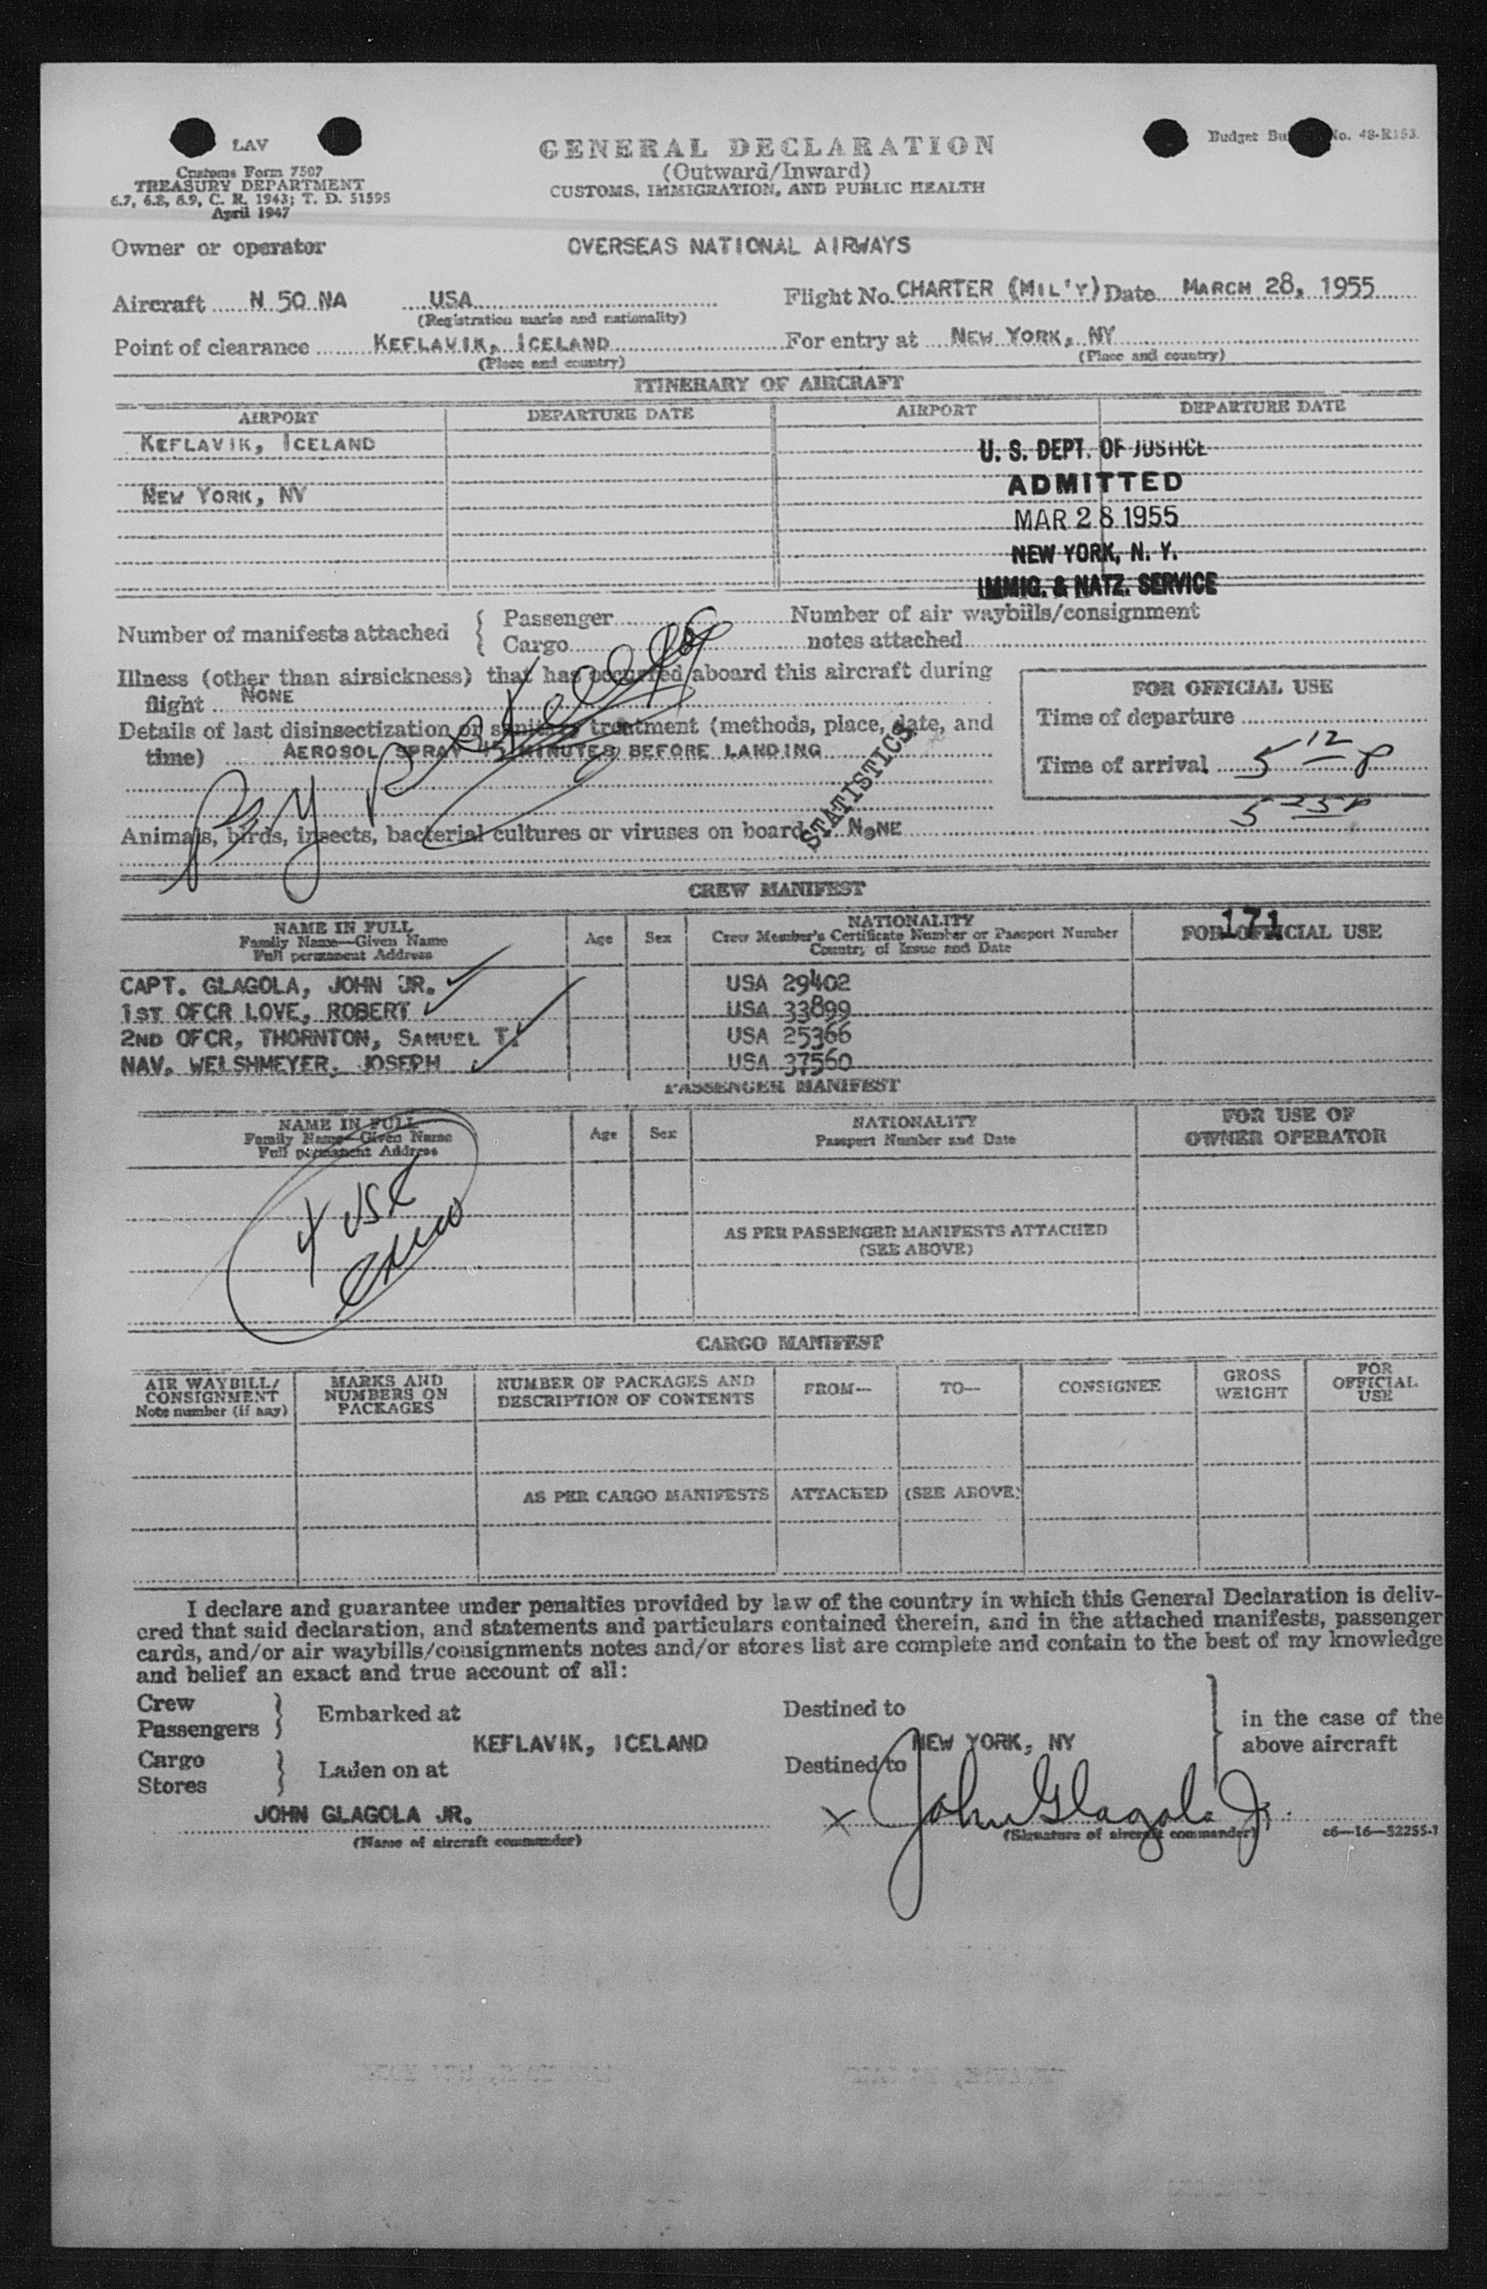 LAV
Customs Form 7507
TREASURY DEPARTMENT
6.7, 6.8, 8.9, C. R. 1943; T. D. 51595
April 1947
GENERAL DECLARATION
(Outward/Inward)
CUSTOMS, IMMIGRATION, AND PUBLIC HEALTH
Budget No. 48-R153.
Owner or operator OVERSEAS NATIONAL AIRWAYS
Aircraft N 50 NA USA Flight No. CHARTER (MIL'Y) Date MARCH 28, 1955
(Registration marks and nationality)
Point of clearance KEFLAVIK, ICELAND For entry at NEW YORK, NY
(Place and country) (Place and country)
ITINERARY OF AIRCRAFT
AIRPORT DEPARTURE DATE AIRPORT DEPARTURE DATE
KEFLAVIK, ICELAND
NEW YORK, NY
U. S. DEPT. OF JUSTICE
ADMITTED
MAR 28 1955
NEW YORK, N. Y.
IMMIG. & NATZ. SERVICE
Number of manifests attached { Passenger Number of air waybills/consignment
Cargo notes attached
Illness (other than airsickness) that has occurred aboard this aircraft during
flight NONE
Details of last disinsectization or sanitary treatment (methods, place, date, and
time) AEROSOL SPRAY 45 MINUTES BEFORE LANDING
STATISTICS
FOR OFFICIAL USE
Time of departure
Time of arrival 5 12 P
5 25 P
Animals, birds, insects, bacterial cultures or viruses on board NONE
CREW MANIFEST
NAME IN FULL
Family Name—Given Name
Full permanent Address
Age Sex
NATIONALITY
Crew Member's Certificate Number or Passport Number
Country of Issue and Date
171
FOR OFFICIAL USE
CAPT. GLAGOLA, JOHN JR. USA 29402
1ST OFCR LOVE, ROBERT USA 33899
2ND OFCR, THORNTON, SAMUEL T. USA 25366
NAV. WELSHMEYER, JOSEPH USA 37560
PASSENGER MANIFEST
NAME IN FULL
Family Name—Given Name
Full permanent Address
Age Sex
NATIONALITY
Passport Number and Date
FOR USE OF
OWNER OPERATOR
4 USC
Crew
AS PER PASSENGER MANIFESTS ATTACHED
(SEE ABOVE)
CARGO MANIFEST
AIR WAYBILL/
CONSIGNMENT
Note number (if any)
MARKS AND
NUMBERS ON
PACKAGES
NUMBER OF PACKAGES AND
DESCRIPTION OF CONTENTS
FROM—
TO—
CONSIGNEE
GROSS
WEIGHT
FOR
OFFICIAL
USE
AS PER CARGO MANIFESTS ATTACHED (SEE ABOVE)
I declare and guarantee under penalties provided by law of the country in which this General Declaration is deliv-
ered that said declaration, and statements and particulars contained therein, and in the attached manifests, passenger
cards, and/or air waybills/consignments notes and/or stores list are complete and contain to the best of my knowledge
and belief an exact and true account of all:
Crew
Passengers } Embarked at Destined to
KEFLAVIK, ICELAND NEW YORK, NY
Cargo
Stores } Laden on at Destined to
} in the case of the
above aircraft
JOHN GLAGOLA JR. X John Glagola Jr.
(Name of aircraft commander) (Signature of aircraft commander) c6—16—52255-1